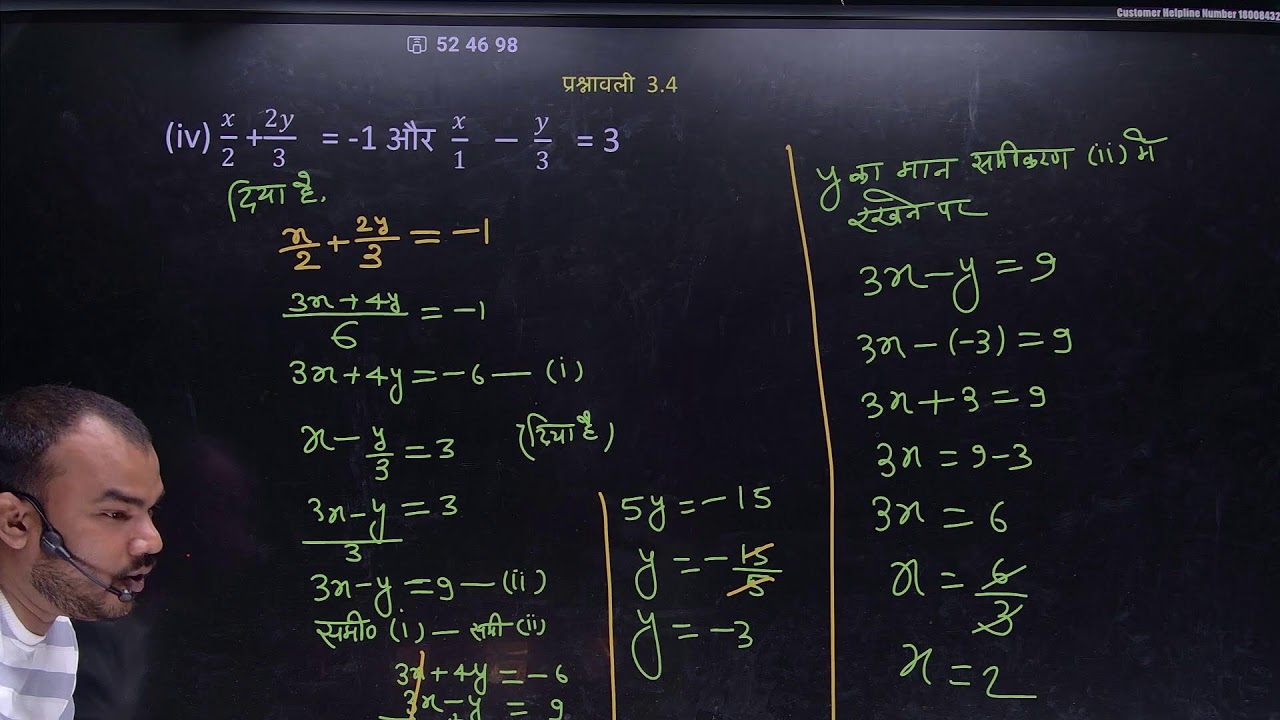 Customer Helpline Number 18008432
52 46 98
प्रश्नावली 3.4
(iv) x/2 + 2y/3 = -1 और x/1 − y/3 = 3
दिया है.
x/2 + 2y/3 = -1
(3x + 4y)/6 = -1
3x + 4y = -6 — (i)
x - y/3 = 3 (दिया है)
(3x - y)/3 = 3
3x - y = 9 — (ii)
समी० (i) — समी (ii)
3x + 4y = -6
3x - y = 9
5y = -15
y = -15/5
y = -3
y का मान समीकरण (ii) मे
रखने पर
3x - y = 9
3x - (-3) = 9
3x + 3 = 9
3x = 9-3
3x = 6
x = 6/3
x = 2